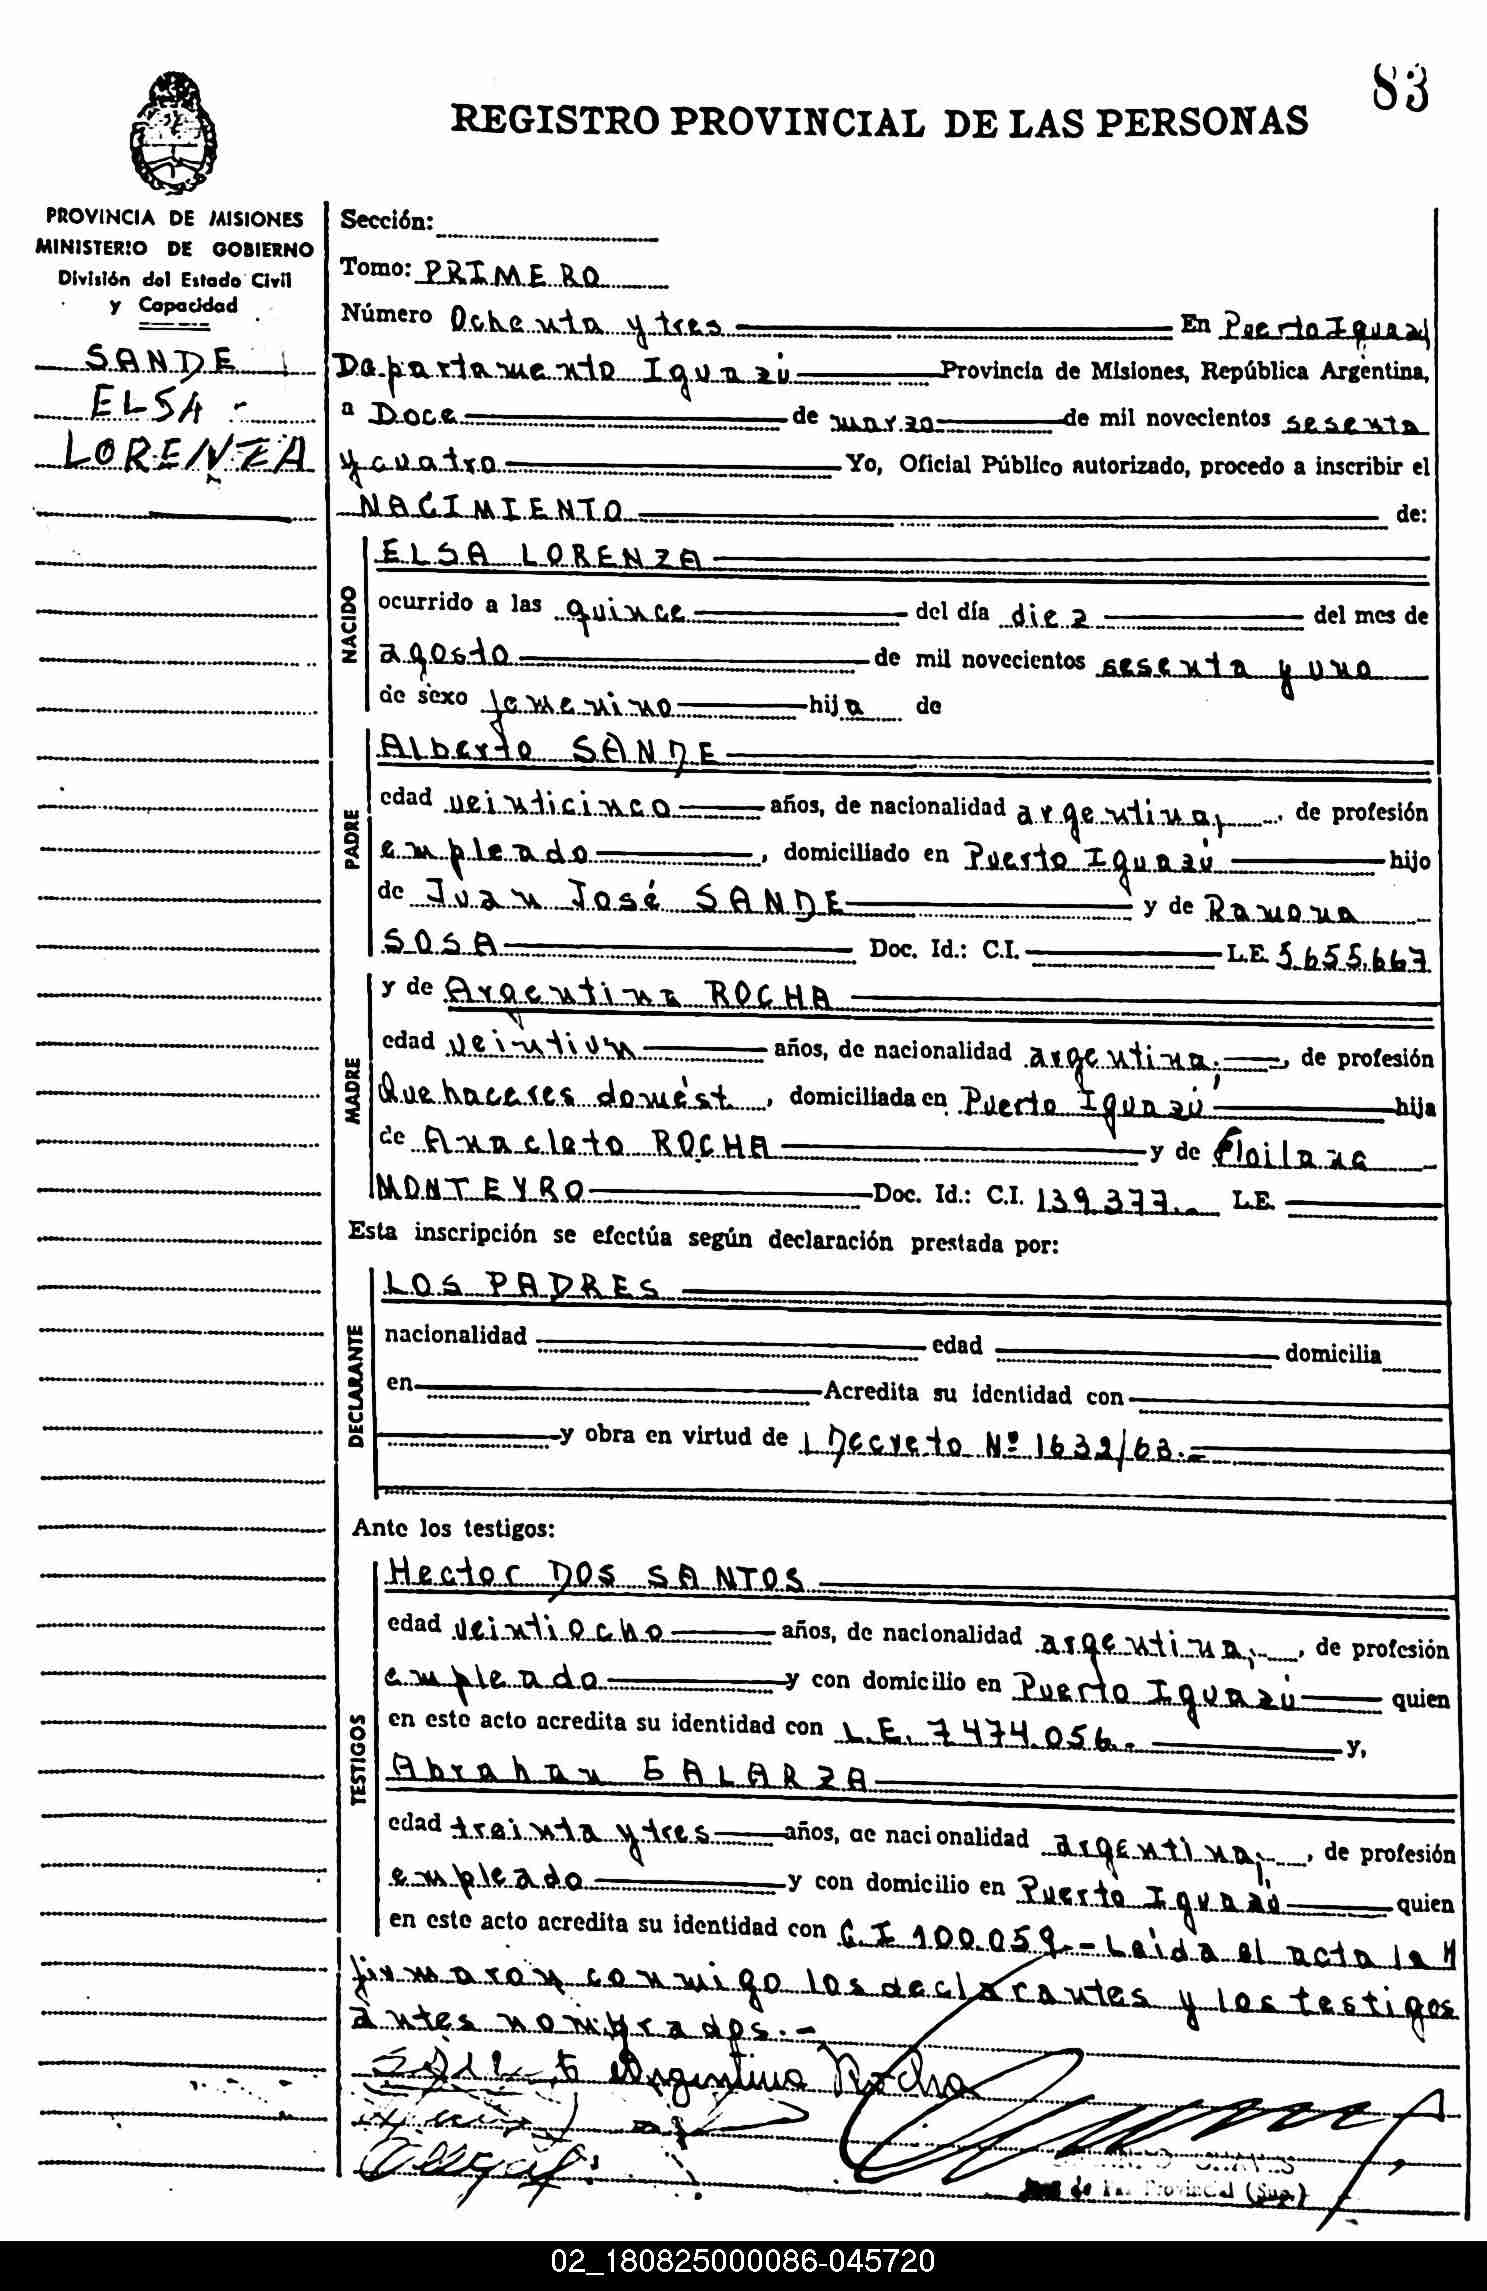 83
REGISTRO PROVINCIAL DE LAS PERSONAS
PROVINCIA DE MISIONES
MINISTERIO DE GOBIERNO
División del Estado Civil
y Capacidad
SANDE
ELSA
LORENZA
Sección:
Tomo: PRIMERO
Número Ochenta y tres En Puerto Iguazú
Departamento Iguazú Provincia de Misiones, República Argentina,
a Doce de marzo de mil novecientos sesenta
y cuatro Yo, Oficial Público autorizado, procedo a inscribir el
NACIMIENTO de:
NACIDO
ELSA LORENZA
ocurrido a las quince del día diez del mes de
agosto de mil novecientos sesenta y uno
de sexo femenino hija de
PADRE
Alberto SANDE
edad veinticinco años, de nacionalidad argentina, de profesión
empleado, domiciliado en Puerto Iguazú hijo
de Juan José SANDE y de Ramona
SOSA Doc. Id.: C.I. L.E. 5.655.667
MADRE
y de Argentina ROCHA
edad veintiun años, de nacionalidad argentina, de profesión
Quehaceres domést, domiciliada en Puerto Iguazú hija
de Anacleto ROCHA y de Floilana
MONTEYRO Doc. Id.: C.I. 139.377.- L.E.
Esta inscripción se efectúa según declaración prestada por:
DECLARANTE
LOS PADRES
nacionalidad edad domicilia
en Acredita su identidad con
y obra en virtud de Decreto Nº 1632/63.-
Ante los testigos:
TESTIGOS
Hector DOS SANTOS
edad veintiocho años, de nacionalidad argentina, de profesión
empleado y con domicilio en Puerto Iguazú quien
en este acto acredita su identidad con L.E. 7474.056.- y,
Abrahan GALARZA
edad treinta y tres años, de nacionalidad argentina, de profesión
empleado y con domicilio en Puerto Iguazú quien
en este acto acredita su identidad con C.I 100.059.- Leída el acta la
firmaron conmigo los declarantes y los testigos
antes nombrados.-
Argentina Rocha
Provincial (Sup.)
02_180825000086-045720